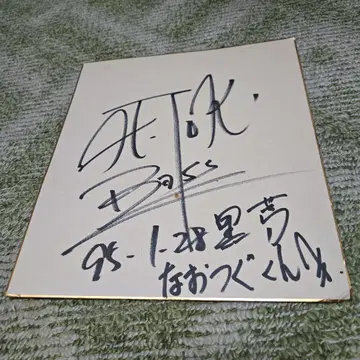 H.ToK.
Bass
95-1-28 黒夢
なおつぐくんへ